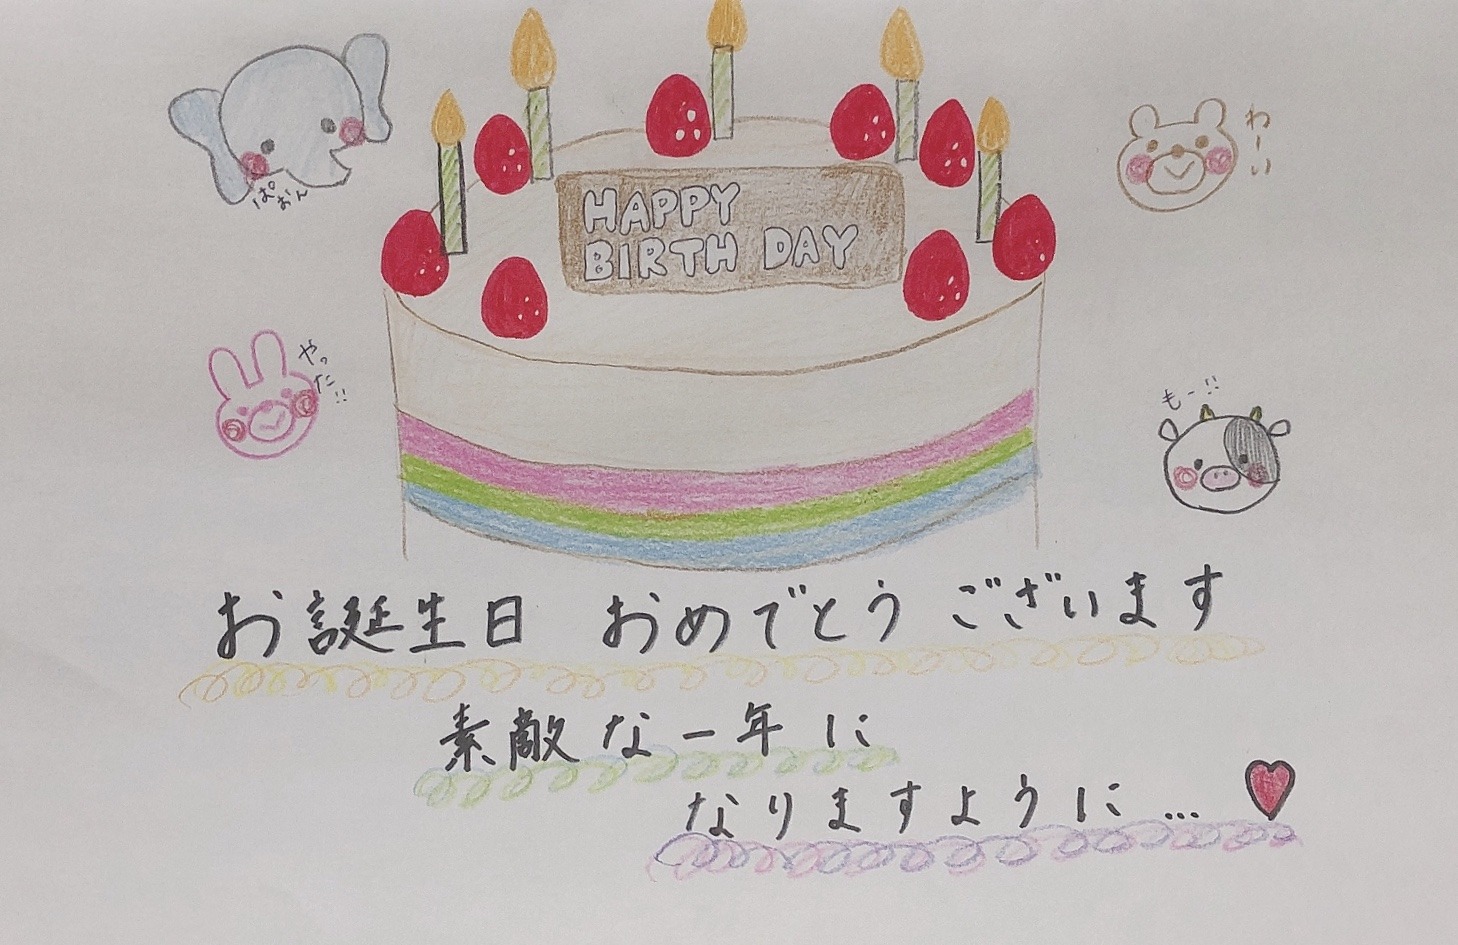 ぱおん
わーい
HAPPY
BIRTH DAY
やった!!
もー!!
お誕生日 おめでとう ございます
素敵な一年に
なりますように…